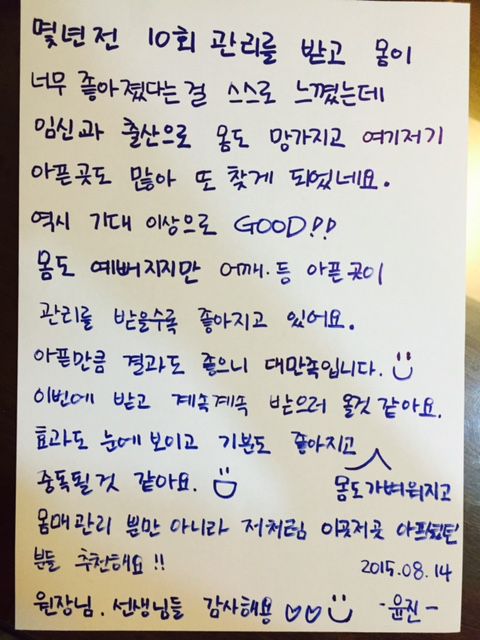 몇년전 10회 관리를 받고 몸이
너무 좋아졌다는걸 스스로 느꼈는데
임신과 출산으로 몸도 망가지고 여기저기
아픈곳도 많아 또 찾게 되었네요.
역시 기대 이상으로 GOOD!!
몸도 예뻐지지만 어깨·등 아픈곳이
관리를 받을수록 좋아지고 있어요.
아픈만큼 결과도 좋으니 대만족입니다.
이번에 받고 계속계속 받으러 올것 같아요.
효과도 눈에 보이고 기분도 좋아지고
몸도가벼워지고
중독될것 같아요.
몸매관리 뿐만 아니라 저처럼 이곳저곳
분들 추천해요!!
2015.08.14
원장님. 선생님들 감사해용 ♡♡
-윤진-